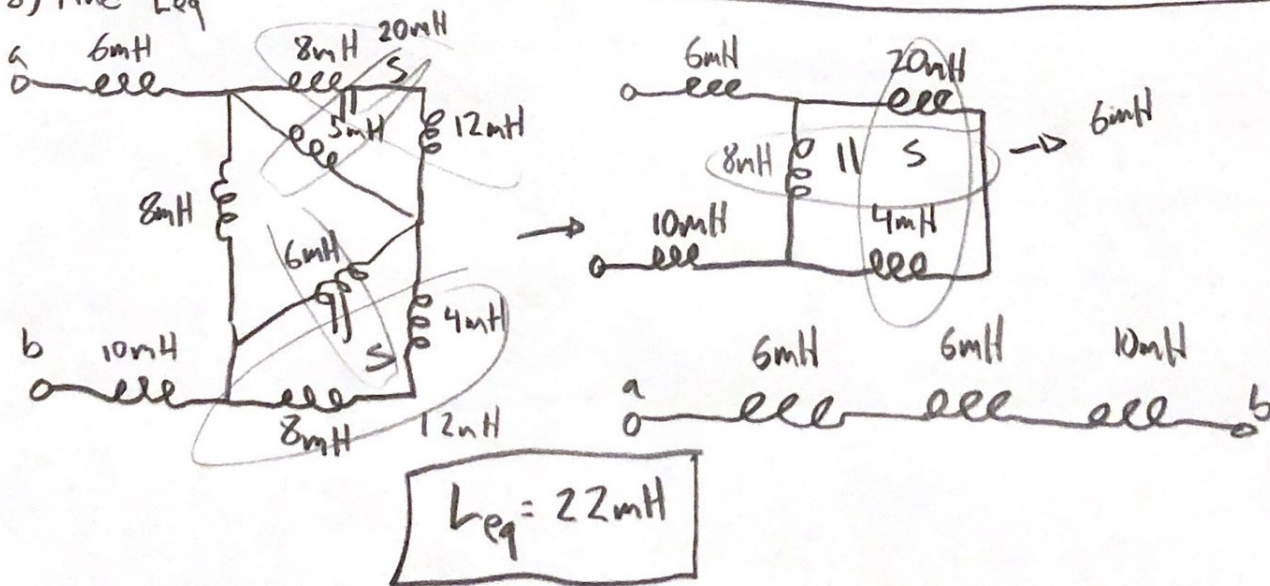 Leq
a
6mH
8mH
20mH
S
||
5mH
12mH
8mH
6mH
||
S
4mH
b
10mH
8mH
12mH
→
6mH
20mH
8mH
||
S
10mH
4mH
→
6mH
a
6mH
6mH
10mH
b
Leq = 22mH